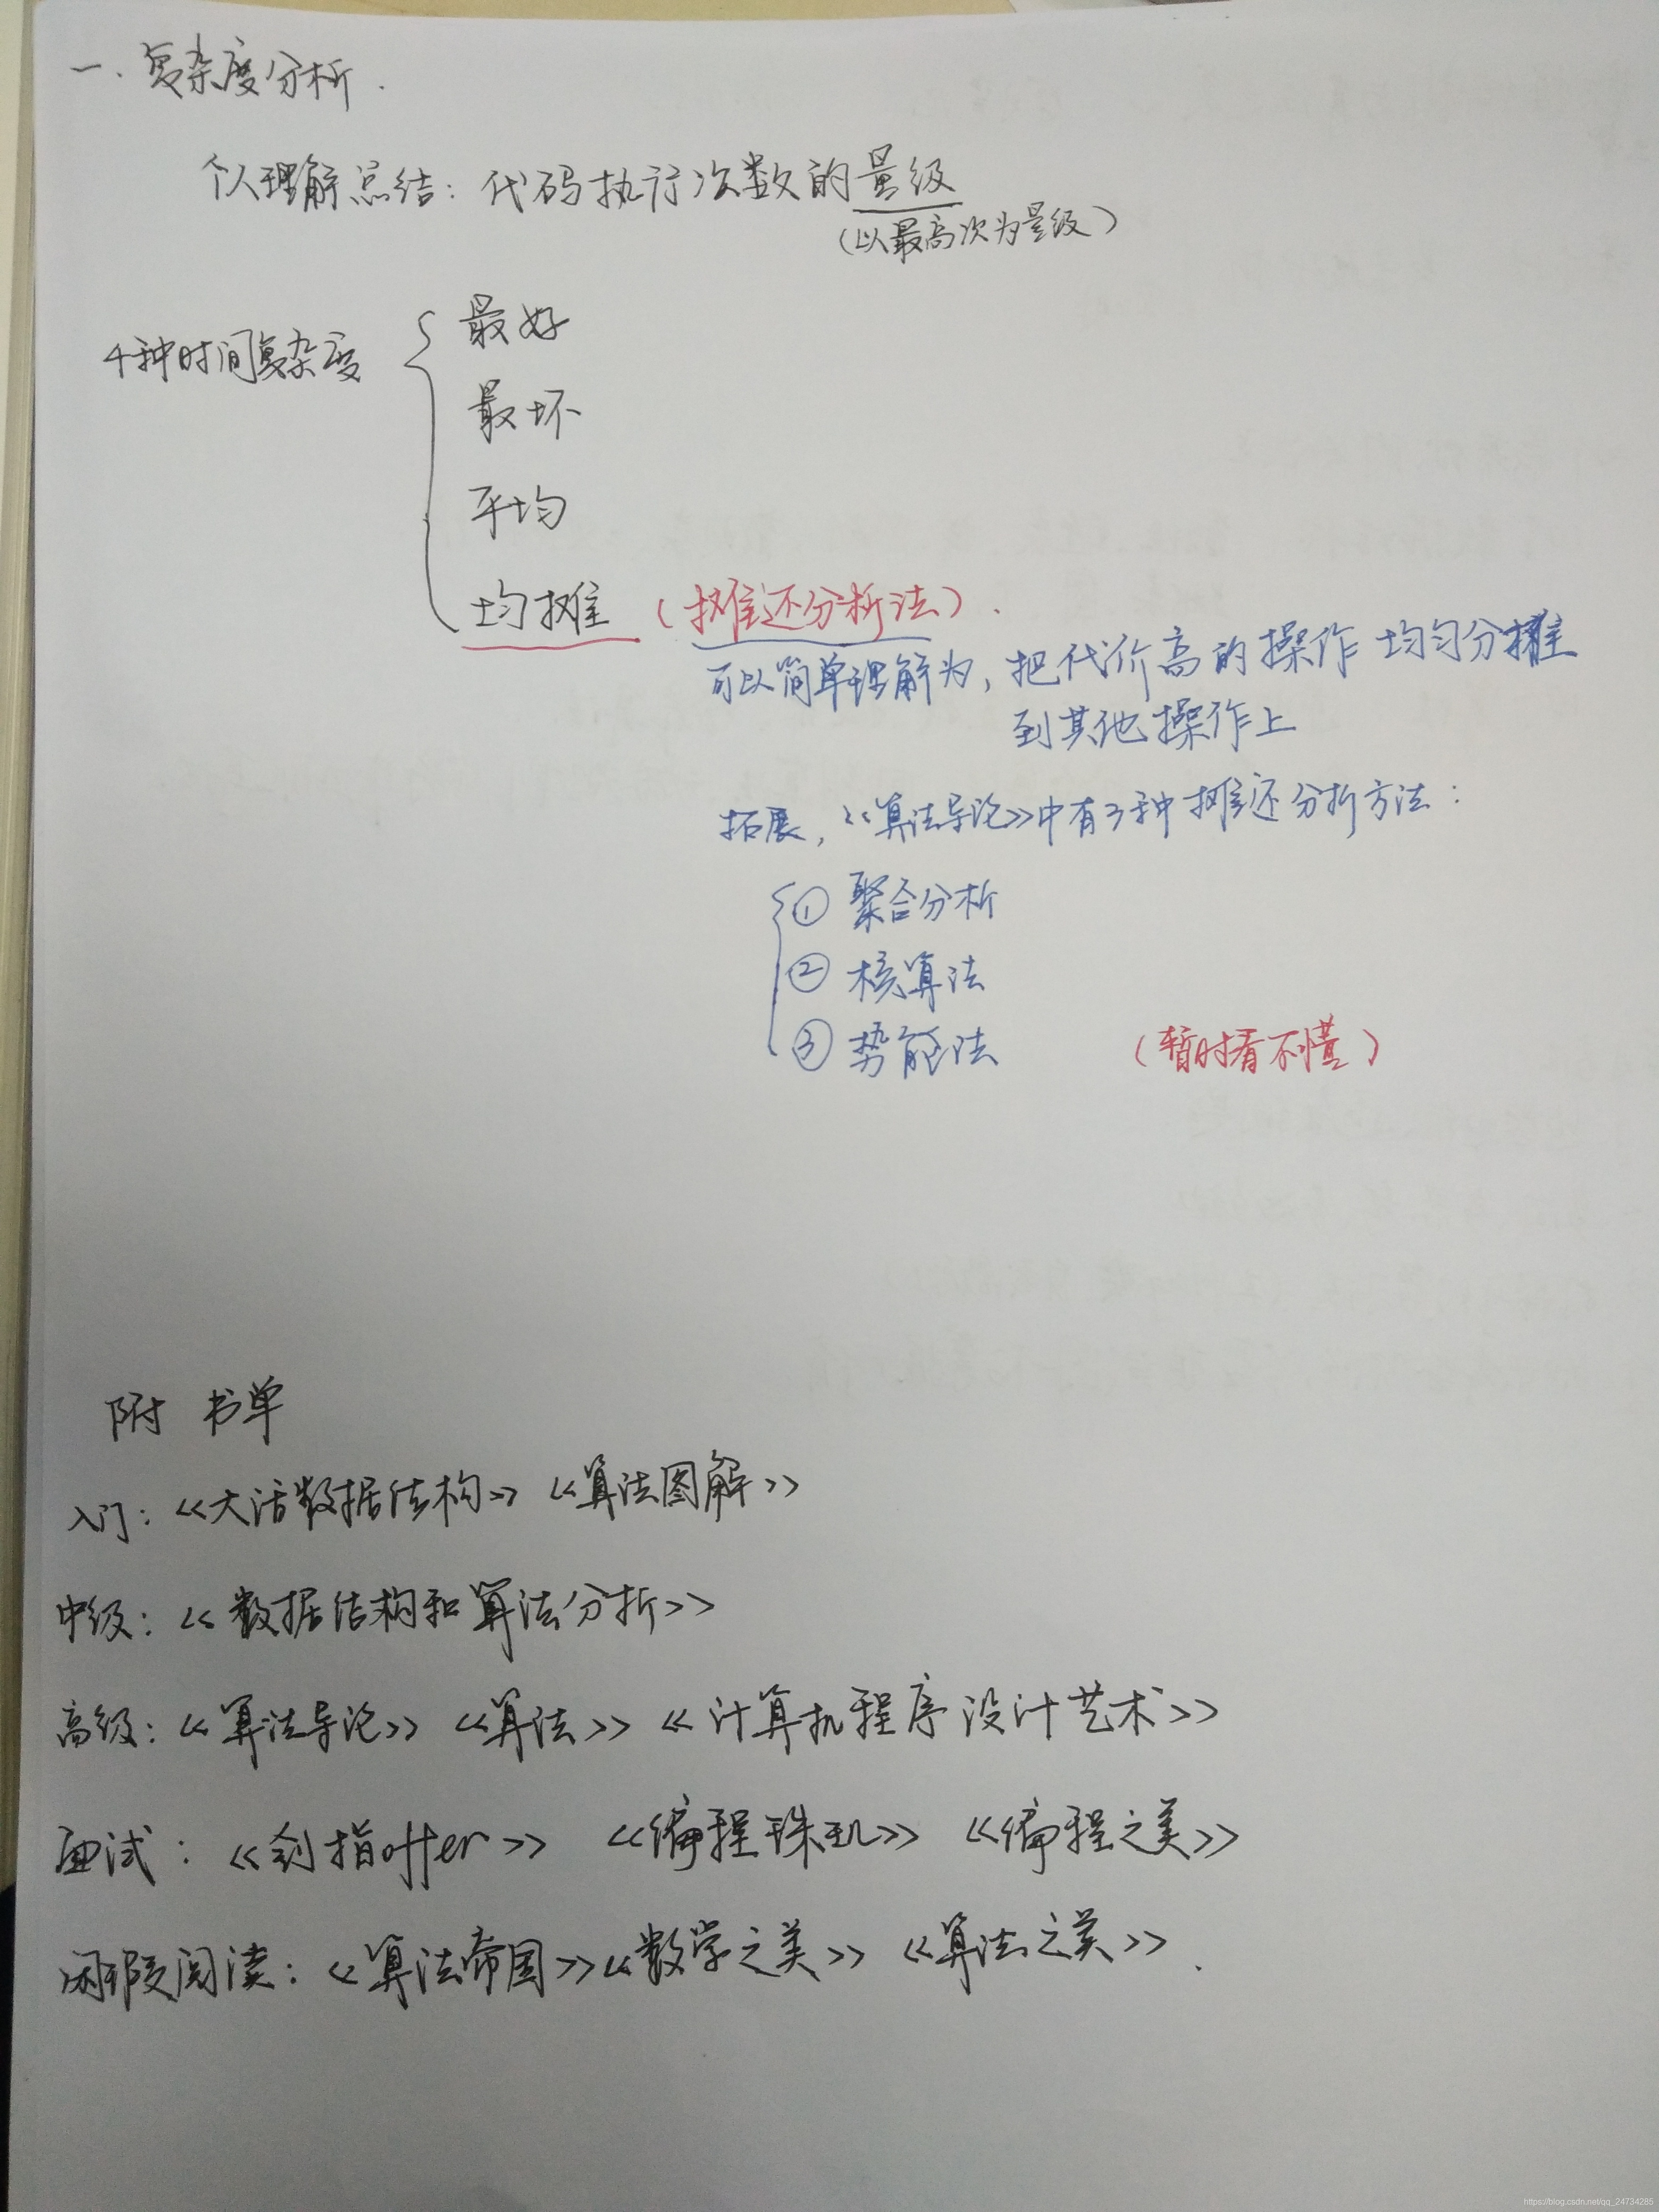 一.复杂度分析.
个人理解总结:代码执行次数的量级
(以最高次为量级)
4种时间复杂度
最好
最坏
平均
均摊(摊还分析法).
可以简单理解为,把代价高的操作 均匀分摊
到其他操作上
拓展,《算法导论》中有3种摊还分析方法:
① 聚合分析
② 核算法
③ 势能法 (暂时看不懂)
附 书单
入门:《大话数据结构》《算法图解》
中级:《数据结构和算法分析》
高级:《算法导论》《算法》《计算机程序设计艺术》
面试:《剑指offer》 《编程珠玑》 《编程之美》
闲暇阅读:《算法帝国》《数学之美》《算法之美》.
https://blog.csdn.net/qq_24734285